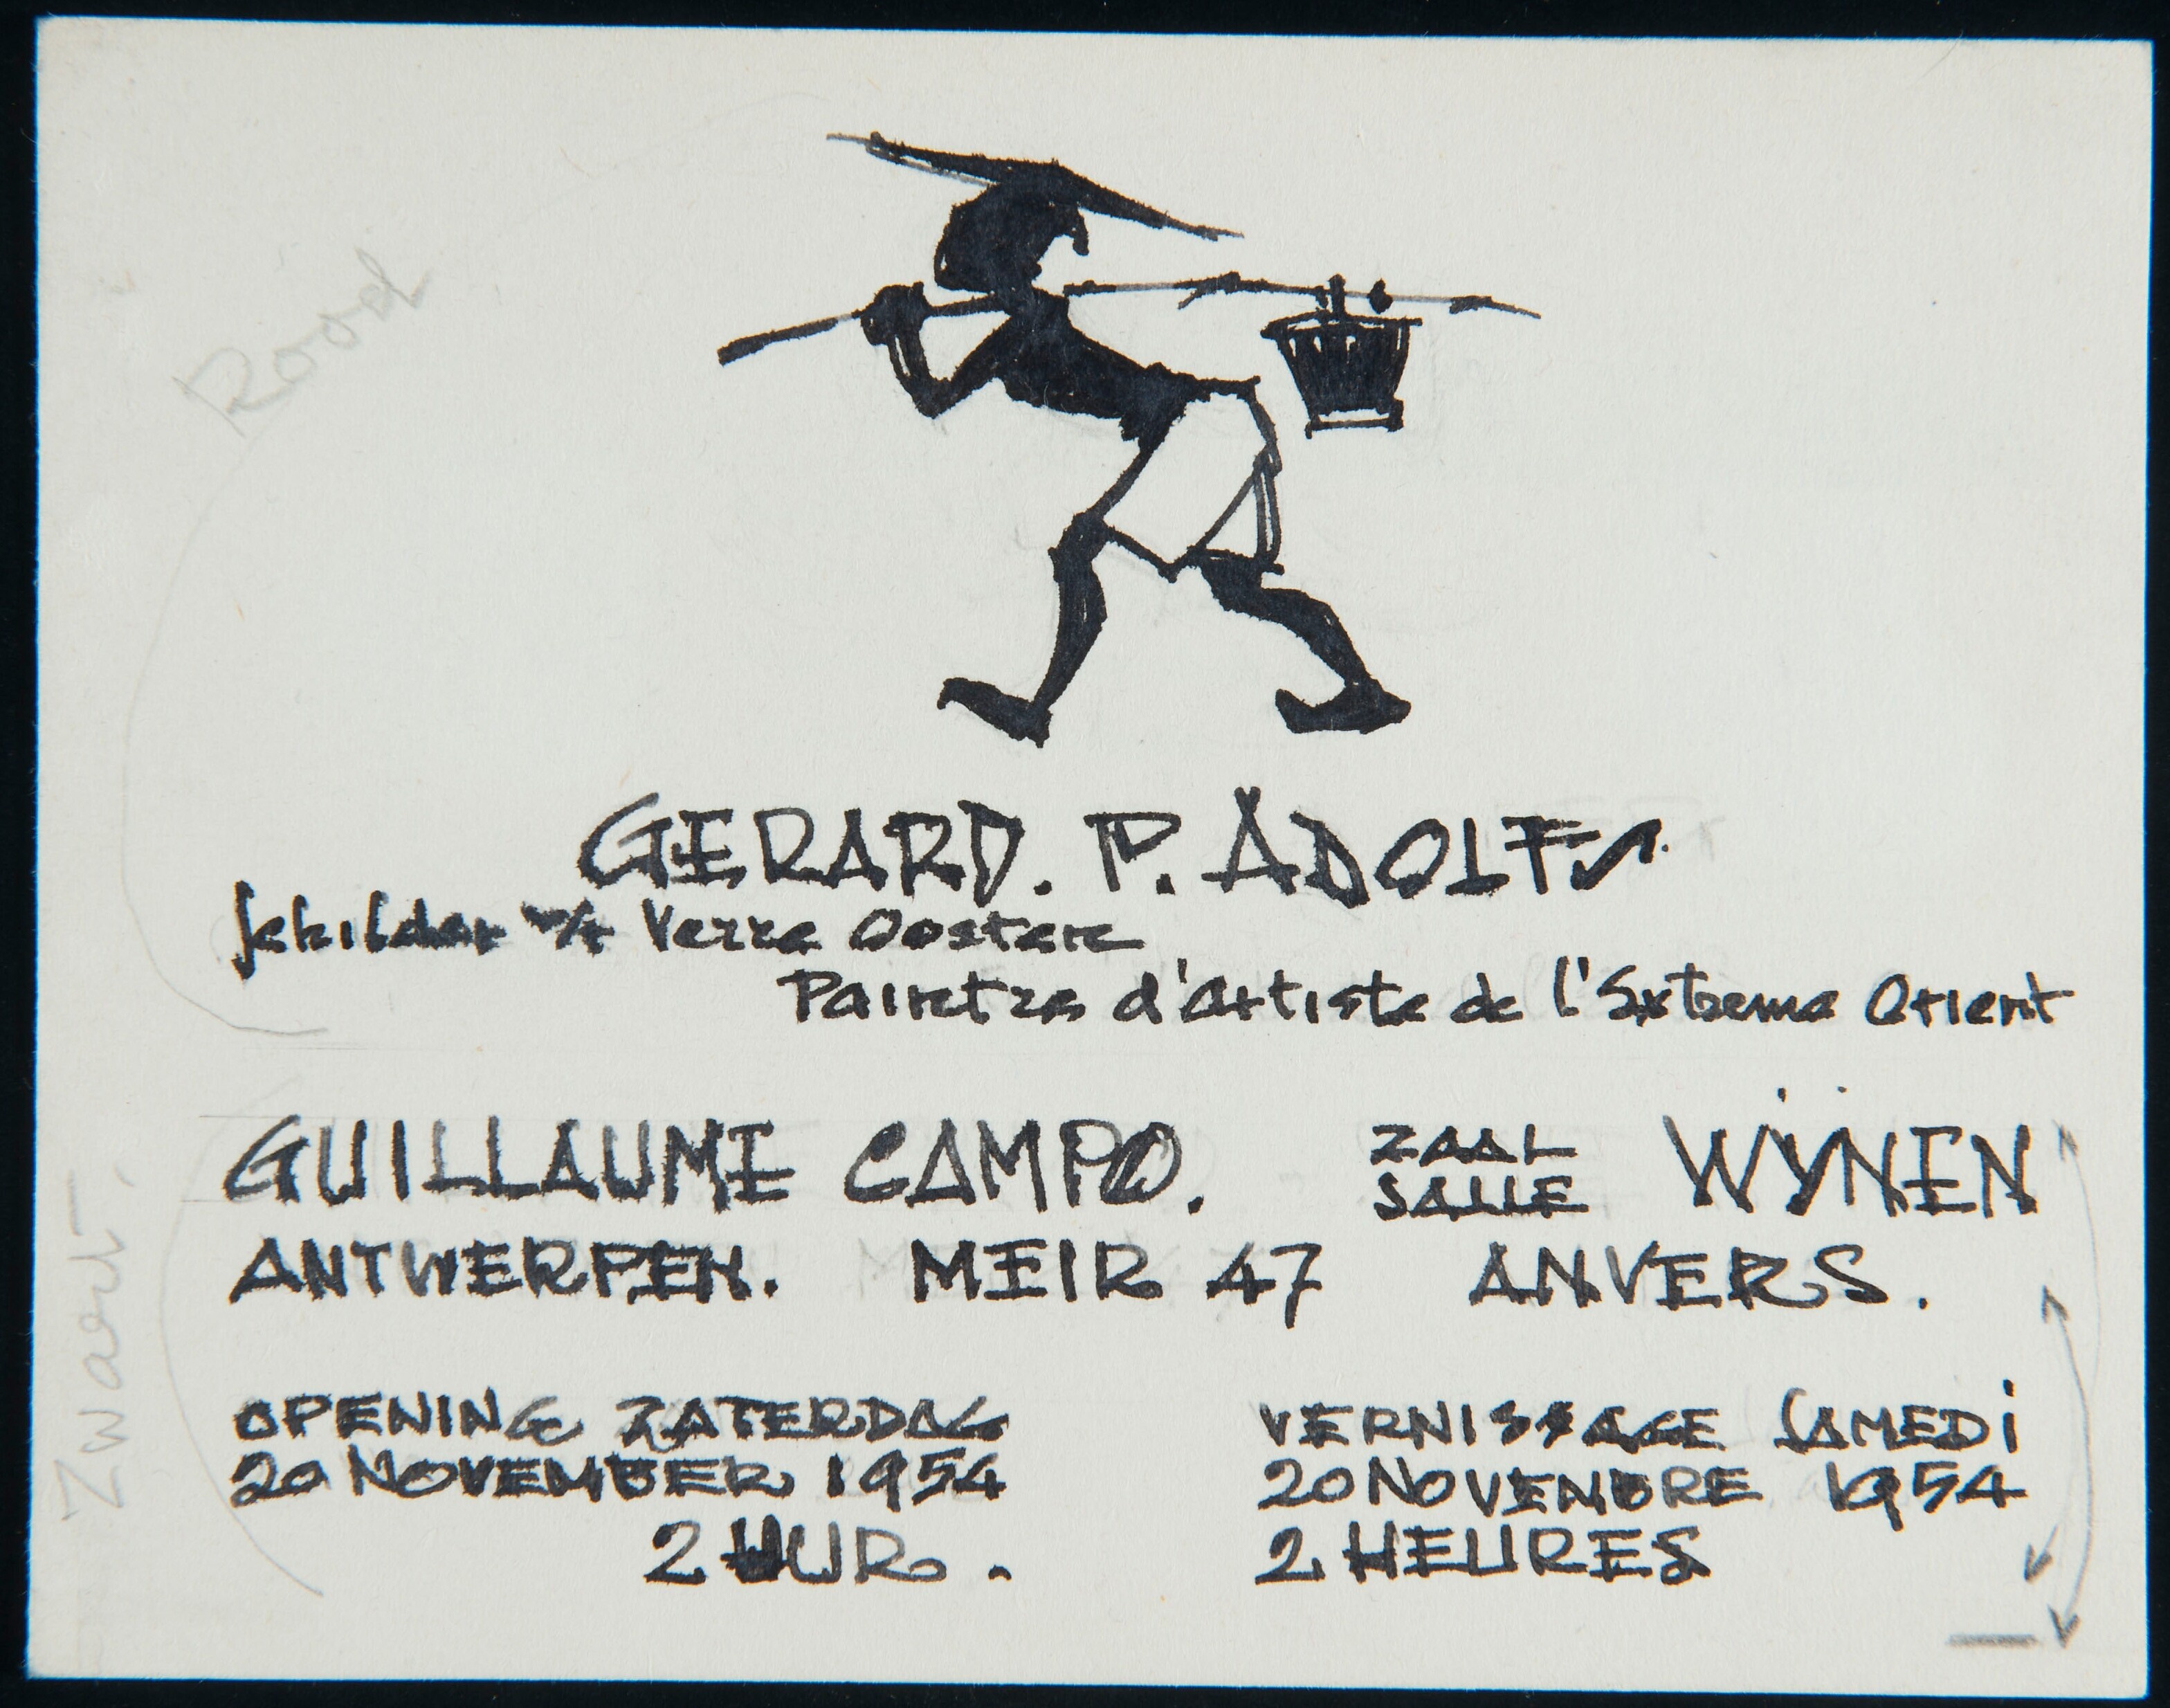 Rood
GERARD. P. ADOLFS.
Schilder v/h Verre Oosten
Peintre d'Artiste de l'Extreme Orient
GUILLAUME CAMPO. ZAAL SALLE WYNEN
ANTWERPEN. MEIR 47 ANVERS.
Zwart
OPENING ZATERDAG
20 NOVEMBER 1954
2 UUR.
VERNISSAGE SAMEDI
20 NOVEMBRE 1954
2 HEURES